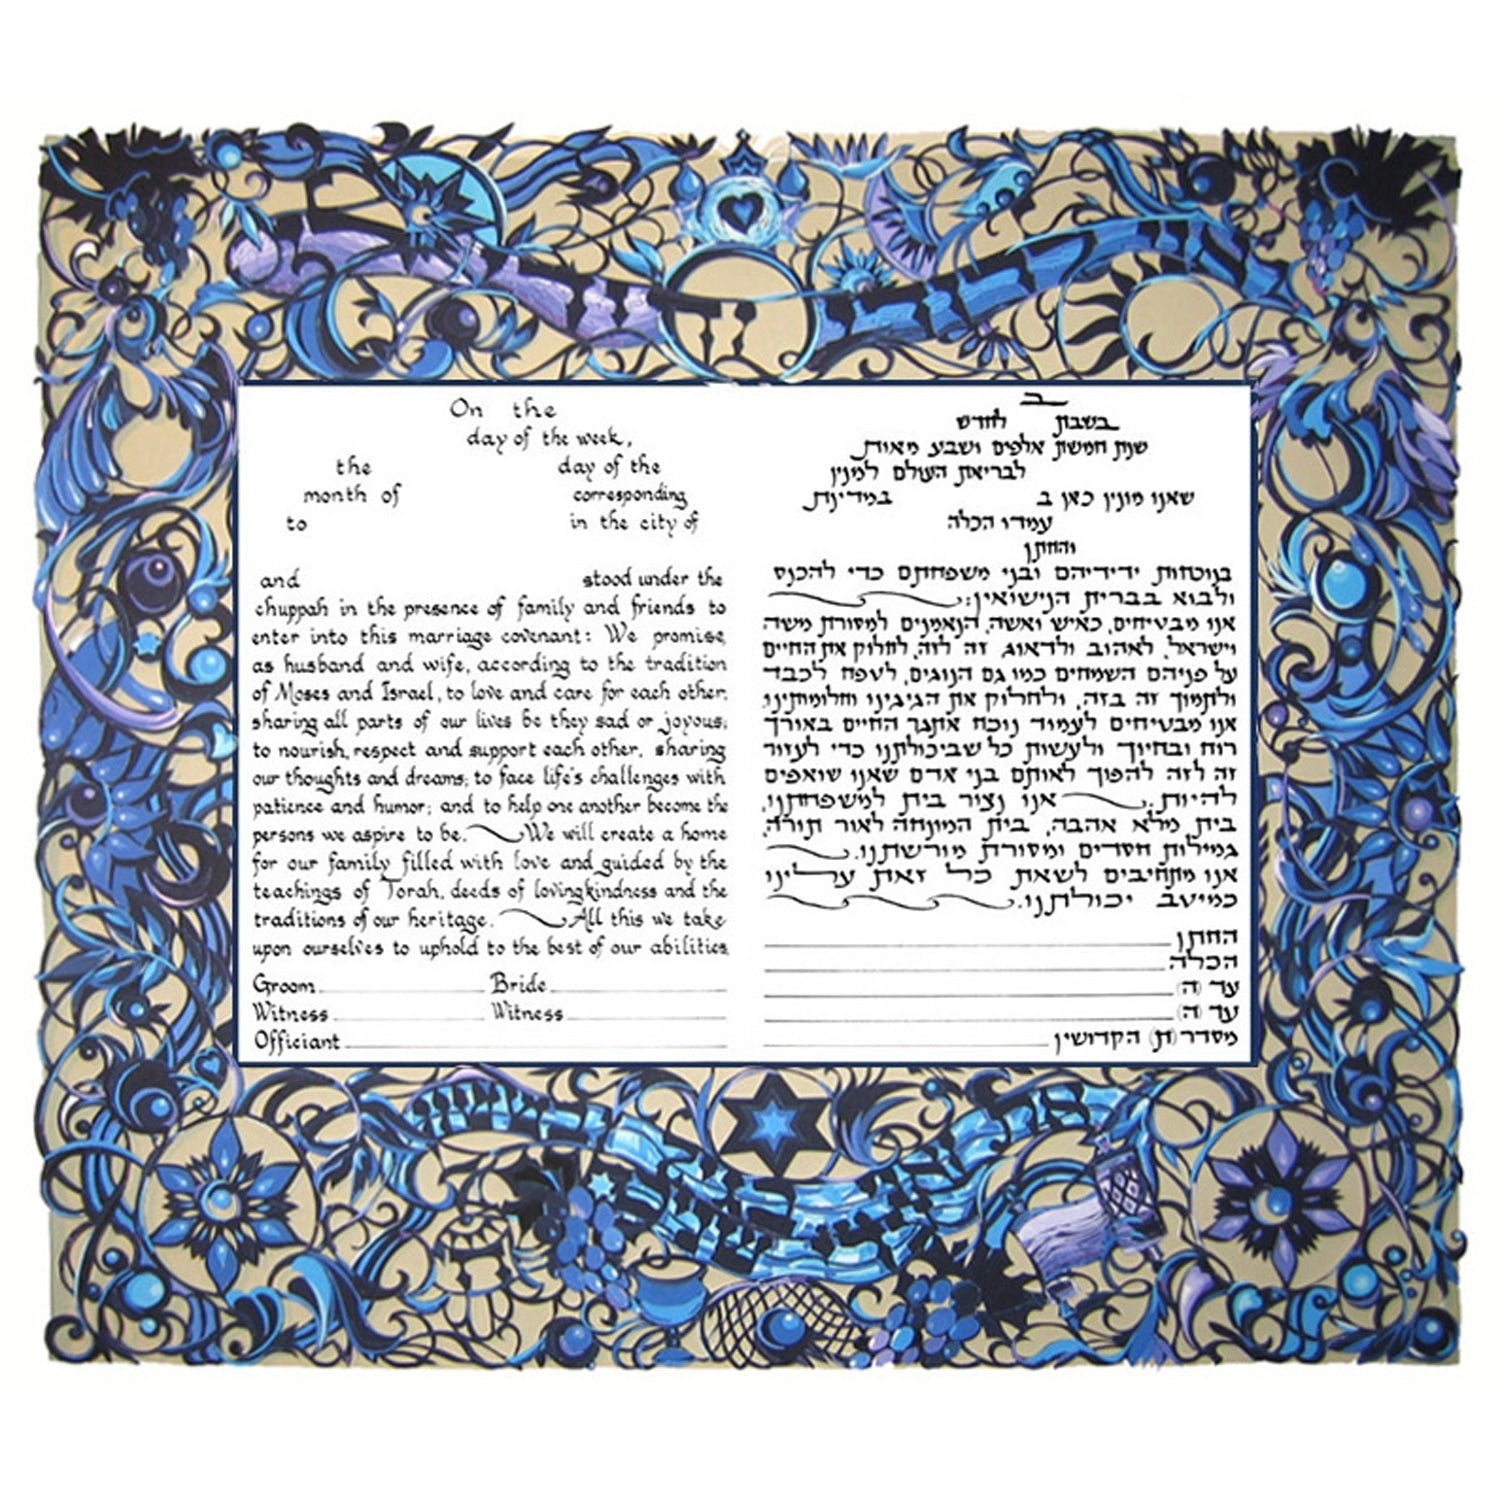 On the
day of the week,
the day of the
month of corresponding
to in the city of
and stood under the
chuppah in the presence of family and friends to
enter into this marriage covenant: We promise,
as husband and wife, according to the tradition
of Moses and Israel, to love and care for each other,
sharing all parts of our lives be they sad or joyous;
to nourish, respect and support each other, sharing
our thoughts and dreams; to face life's challenges with
patience and humor; and to help one another become the
persons we aspire to be. We will create a home
for our family filled with love and guided by the
teachings of Torah, deeds of lovingkindness and the
traditions of our heritage. All this we take
upon ourselves to uphold to the best of our abilities.
Groom Bride
Witness Witness
Officiant
ב
בשבת לחדש
שנת חמשת אלפים ושבע מאות
לבריאת העולם למנין
שאנו מונין כאן ב במדינת
עמדו הכלה
והחתן
בנוכחות ידידיהם ובני משפחתם כדי להכנס
ולבוא בברית הנישואין:
אנו מבטיחים, כאיש ואשה, הנאמנים למסורת משה
וישראל, לאהוב ולדאוג, זה לזה, לחלוק את החיים
על פניהם השמחים כמו גם הנוגים, לטפח לכבד
ולתמוך זה בזה, ולחלוק את הגיגינו וחלומותינו.
אנו מבטיחים לעמוד נוכח אתגר החיים באורך
רוח ובחיוך ולעשות כל שביכולתנו כדי לעזור
זה לזה להפוך לאותם בני אדם שאנו שואפים
להיות. אנו נצור בית למשפחתנו,
בית מלא אהבה, בית המונחה לאור תורה,
גמילות חסדים ומסורת מורשתנו.
אנו מתחיבים לשאת כל זאת עלינו
כמיטב יכולתנו.
החתן
הכלה
עד (ה)
עד (ה)
מסדר (ת) הקדושין